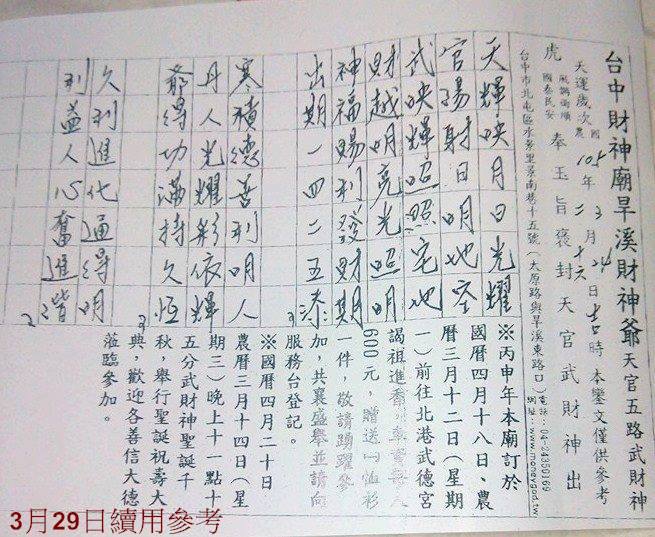 台中財神廟旱溪財神爺天官五路武財神
天運歲次國105年3月24日古時本鑾文僅供參考
農二十六
風調雨順
國泰民安
虎奉玉旨褒封天官武財神出
台中市北屯區水景里景南巷十五號(太原路與旱溪東路口)
電話:04-24350169
網址:www.moneygod.tw
天輝映月日光耀
官陽射日明地
武映輝照照宅地
財越明亮光照明
神福賜利發財期
出期一四二五添
寒積德善利明人
丹人光耀彩依輝
爺得功滿持久恆
久利進化通得明
利益人心奮進諧
※丙申年本廟訂於
國曆四月十八日、農
曆三月十二日(星期
一)前往北港武德宮
謁祖進香
600元,贈送T恤衫
一件,敬請踴躍參
加,共襄盛舉並請向
服務台登記。
※國曆四月二十日
農曆三月十四日(星
期三)晚上十一點十
五分武財神聖誕千
秋,舉行聖誕祝壽大
典,歡迎各善信大德
蒞臨參加。
3月29日續用參考